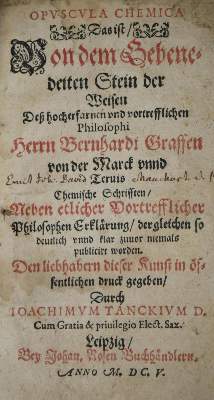 OPVSCVLA CHEMICA
Das ist/
Von dem Gebene-
deiten Stein der
Weisen
Deß hocherfarnen vnd vortrefflichen
Philosophi
Herrn Bernhardi Graffen
von der Marck vnnd
Tervis
Chemische Schrifften/
Neben etlicher Vortrefflicher
Philosophen Erklärung/ dergleichen so
deutlich vnnd klar zuuor niemals
publiciret worden.
Den liebhabern dieser Kunst in öf-
fentlichen druck gegeben/
Durch
IOACHIMVM TANCKIVM D.
Cum Gratia & priuilegio Elect. Sax.
Leipzig/
Bey Johan. Rosen Buchhändlern.
ANNO M. DC. V.